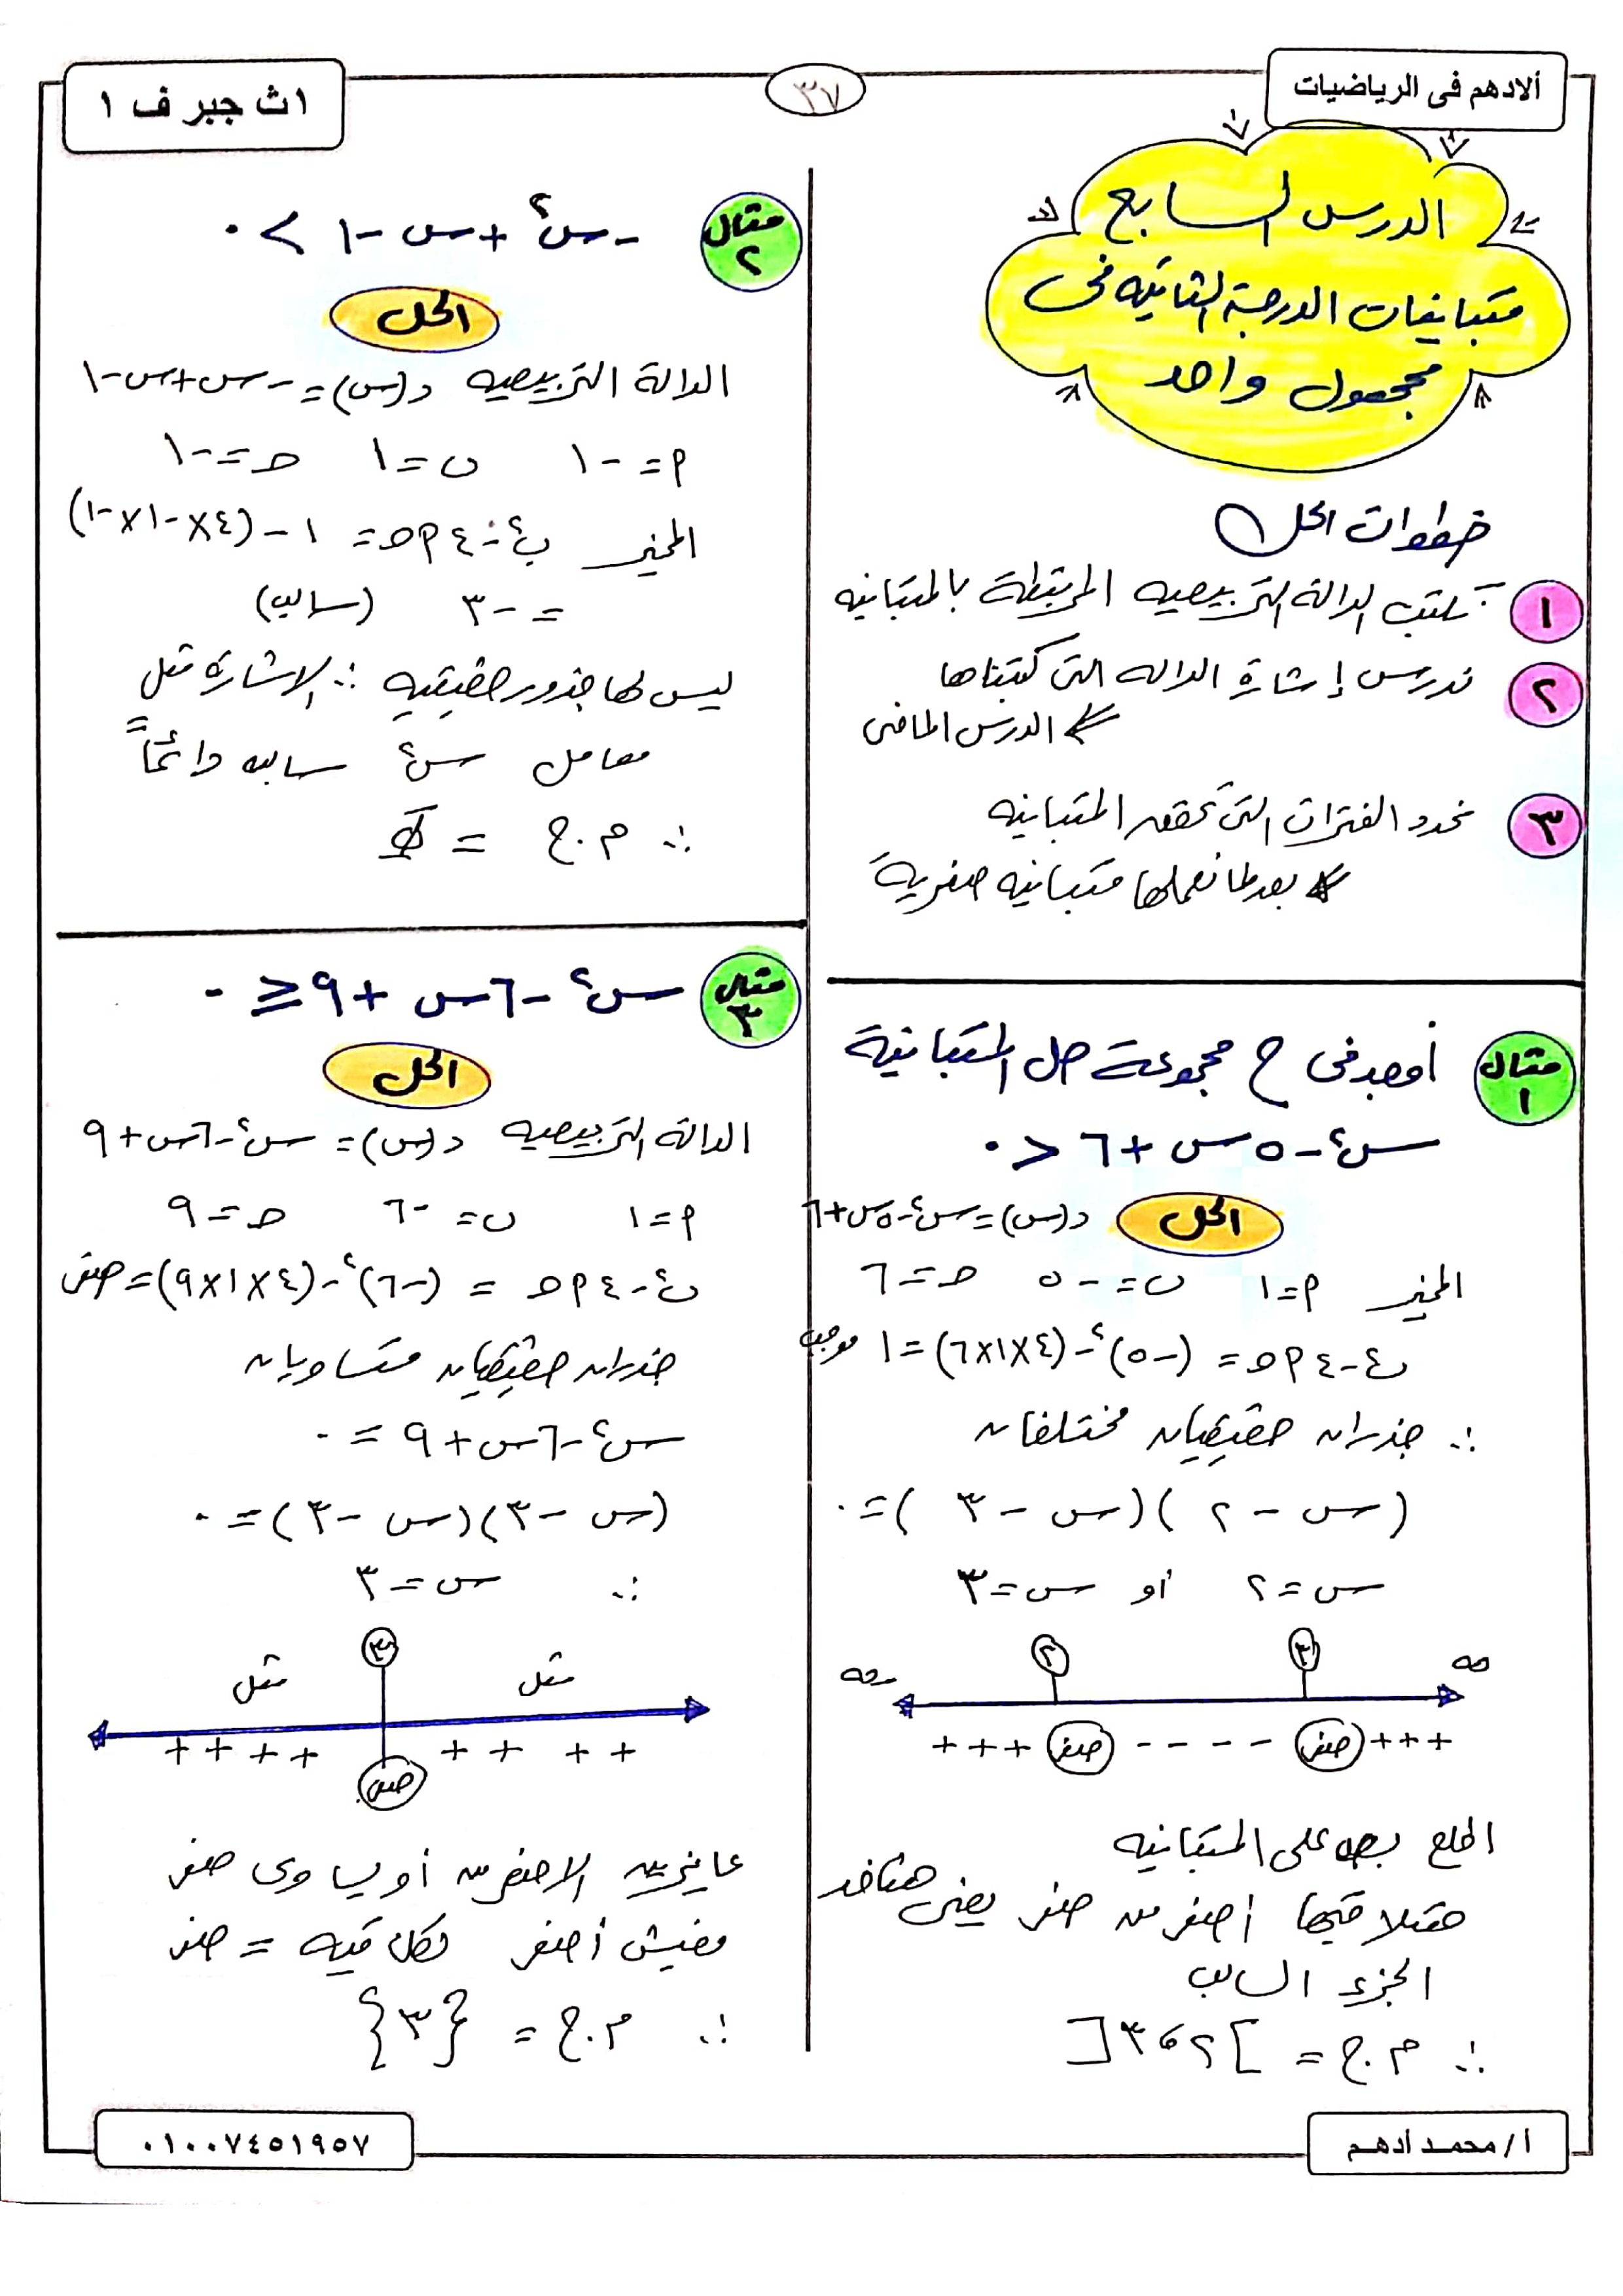 ألادهم فى الرياضيات
٣٧
١ث جبر ف ١
الدرس السابع
متباينات الدرجة الثانيه فى
مجهول واحد
خطوات الحل
١ نكتب الدالة التربيعيه المرتبطة بالمتباينه
٢ ندرس إشارة الداله التى كتبناها
الدرس الماضى
٣ نحدد الفترات التى تحقق المتباينه
بعد ما نعملها متباينه صفرية
مثال ١ أوجد فى ح مجموعة حل المتباينة
س٢ - ٥س + ٦ < ٠
الحل د(س) = س٢ - ٥س + ٦
المميز م = ١ ب = -٥ حـ = ٦
ب٢ - ٤م حـ = (-٥)٢ - (٤×١×٦) = ١ موجب
∴ جذران حقيقيان مختلفان
(س - ٢)(س - ٣) = ٠
س = ٢ أو س = ٣
-∞ ٢ ٣ ∞
+++ صفر - - - - صفر +++
اطلع بص على المتباينه
هتلاقيها أصغر من صفر يعنى هتاخد
الجزء السالب
∴ م.ح = ]٢، ٣[
مثال ٢ -س٢ + س - ١ > ٠
الحل
الدالة التربيعيه د(س) = -س + س - ١
م = -١ ب = ١ حـ = -١
المميز ب٢ - ٤م حـ = ١ - (٤×-١×-١)
= -٣ (سالب)
ليس لها جذور حقيقيه ∴ الاشارة مثل
معامل س٢ سالبه دائماً
∴ م.ح = Φ
مثال ٣ س٢ - ٦س + ٩ ≤ ٠
الحل
الدالة التربيعيه د(س) = س٢ - ٦س + ٩
م = ١ ب = -٦ حـ = ٩
ب٢ - ٤م حـ = (-٦)٢ - (٤×١×٩) = صفر
جذران حقيقيان متساويان
س٢ - ٦س + ٩ = ٠
(س - ٣)(س - ٣) = ٠
∴ س = ٣
مثل ٣ مثل
++++ صفر ++ ++
عايزين الاصغر من أو يساوى صفر
مفيش أصغر لكن فيه = صفر
∴ م.ح = {٣}
أ/ محمد أدهم
٠١٠٠٧٤٥١٩٥٧